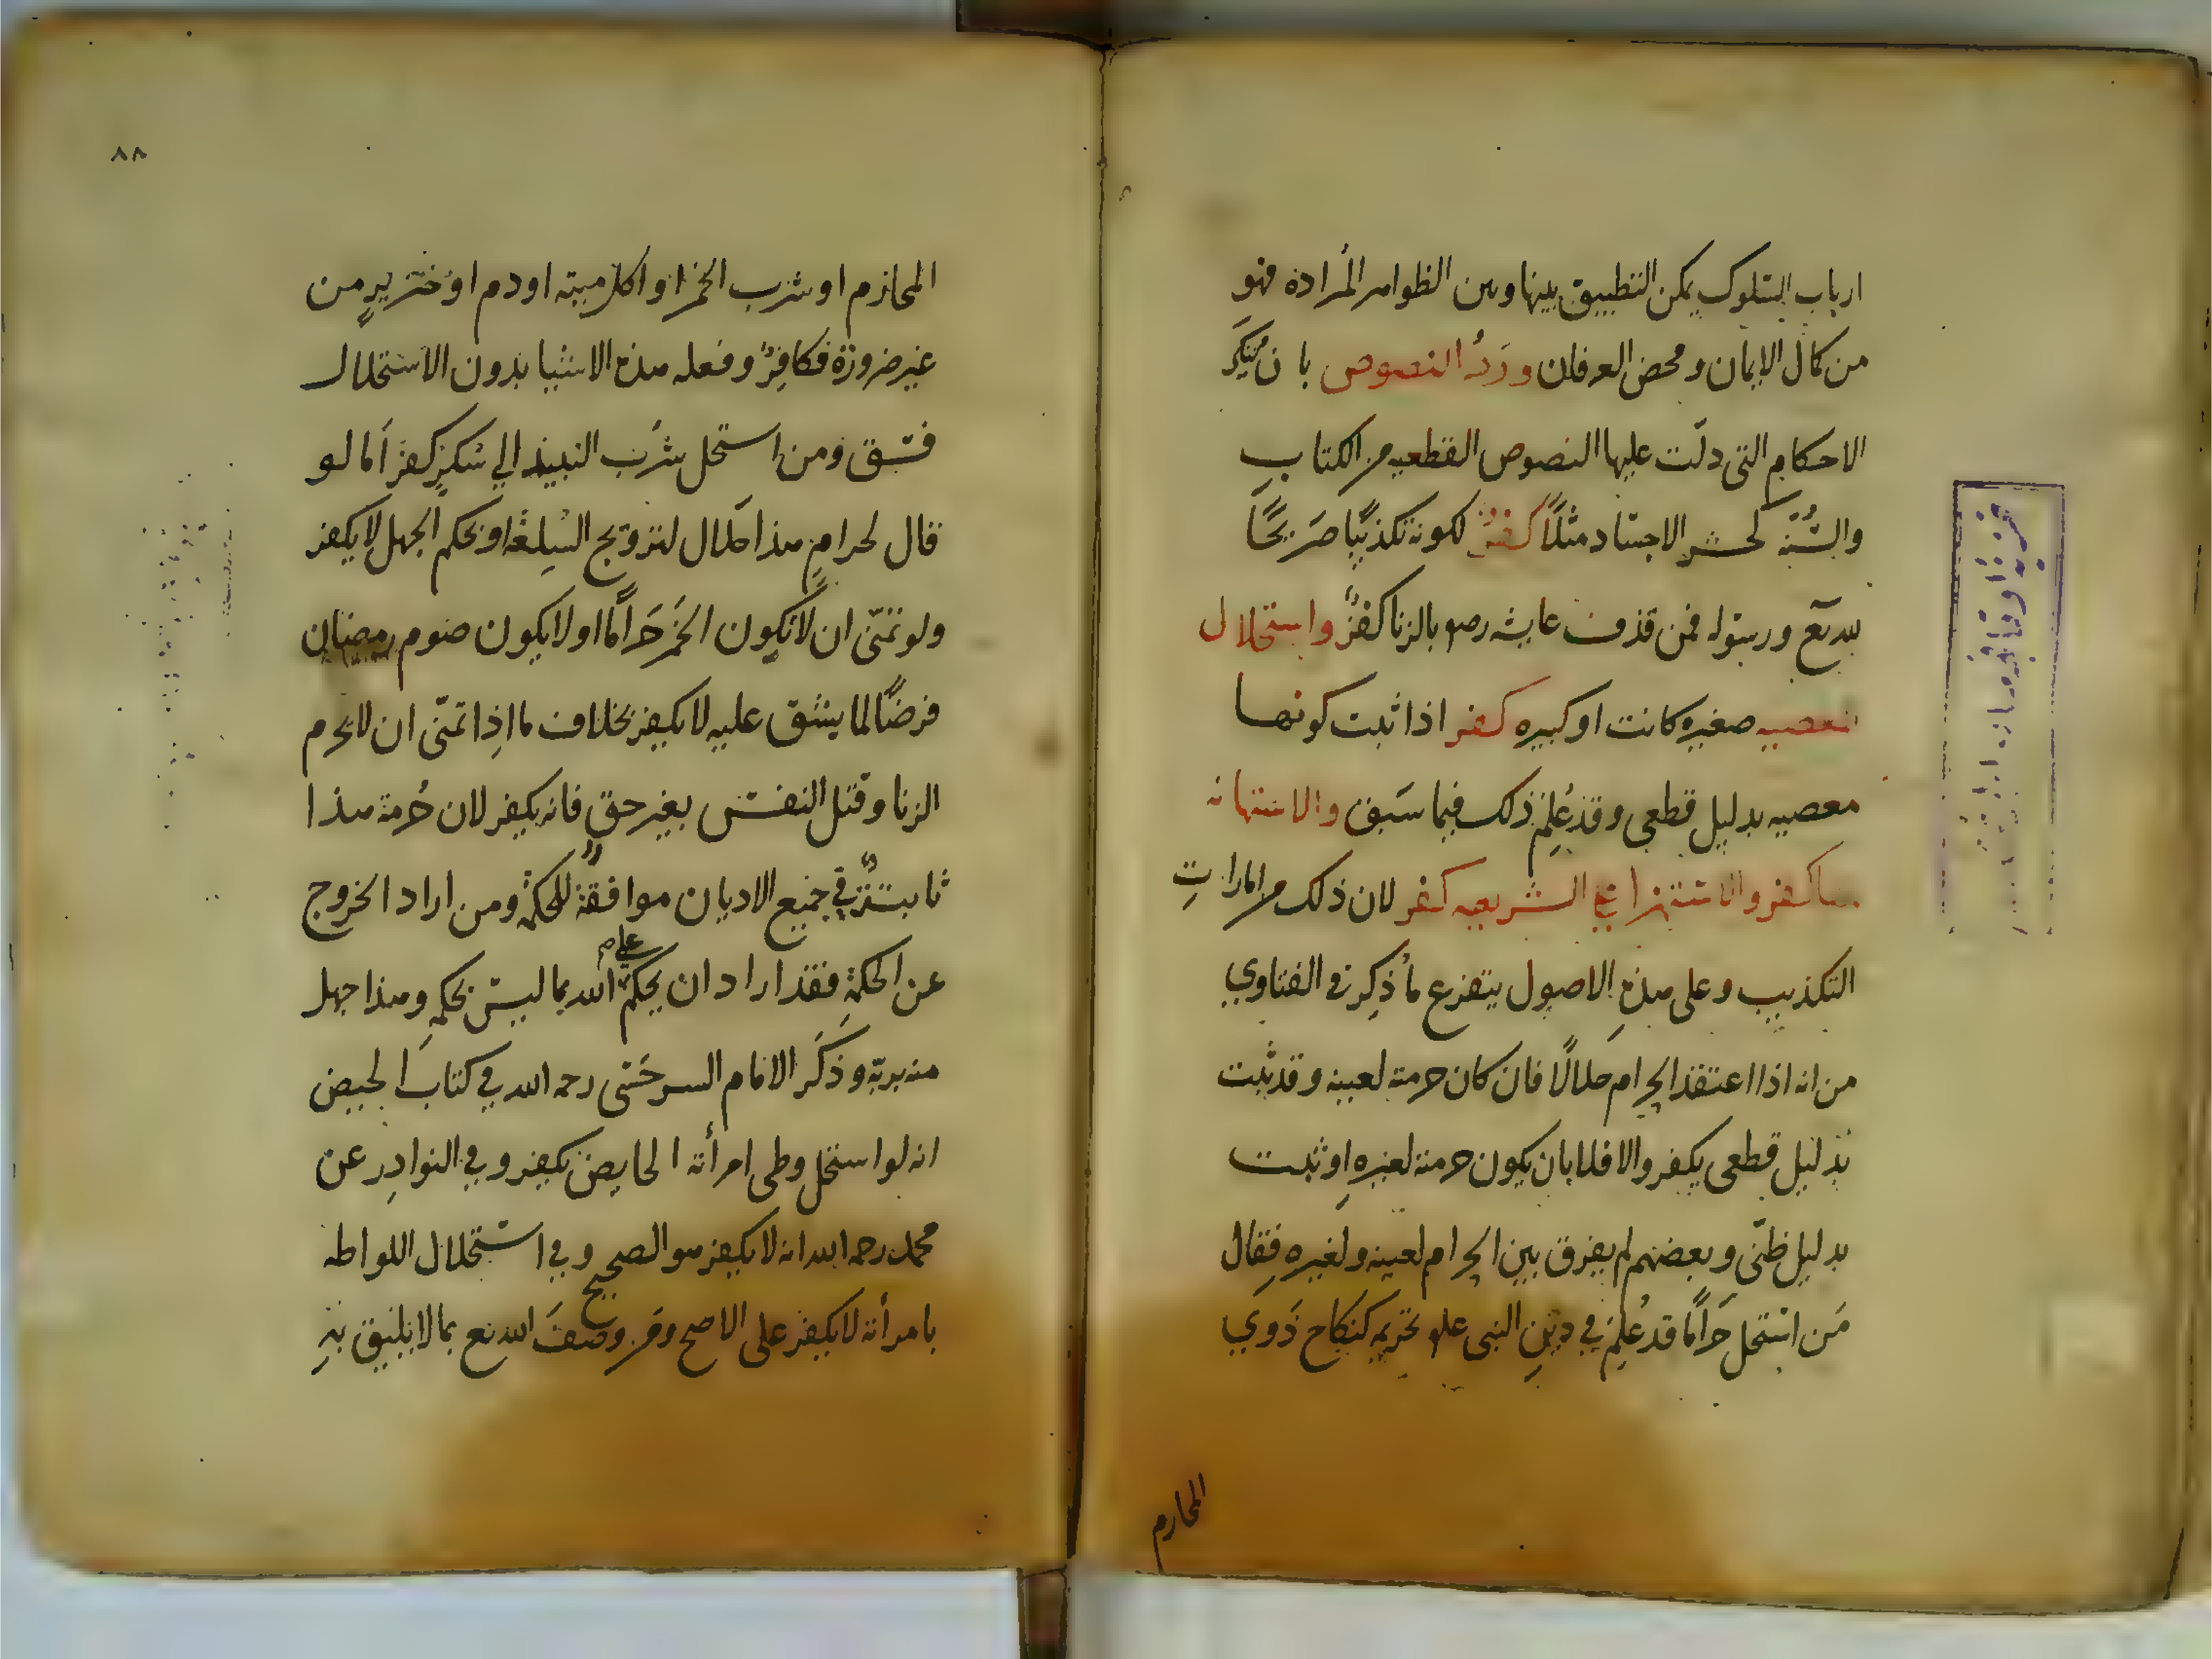 ارباب السلوك يمكن التطبيق بينها وبين الظواهر المرادة فهو
من كمال الايمان ومحض العرفان ورد النصوص بان ينكر
الاحكام التى دلّت عليها النصوص القطعيه من الكتاب
والسُّنّة كحشر الاجساد مثلاً كفرٌ لكونه تكذيبًا صَريحًا
لله تع ورسوله فمن قذف عايشه رضو بالزنا كفرٌ واستحلال
المعصيه صغيره كانت او كبيره كفر اذا ثبت كونها
معصيه بدليل قطعى وقد عُلِم ذلك فيما سَبق والاستهانه
بها كفر والاستهزا على الشريعه كفر لان ذلك من امارات
التكذيب وعلى هذهِ الاصول يتفرع ما ذكِر فى الفتاوي
من انه اذا اعتقد الحرام حلالًا فان كان حرمته لعينه وقد ثبت
بدليل قطعى يكفر والا فلا بان يكون حرمته لغيرهِ او ثبت
بدليل ظنّى وبعضهم لم يفرق بين الحرام لعينه ولغيره فقال
مَن استحل حَرامًا قد عُلِم في دينِ النبى علم تحريمه كنكاح ذَوي
المحارم
٨٨
المحارم او شرب الخمر او اكل ميته او دم او خنزيرٍ من
غير ضرورة فكافِرٌ وفعله هذه الاشيا بدون الاستحلال
فسق ومن استحل شرب النبيذ الي سكرٍ كفر اَما لو
قال لحرامٍ هذا حَلال لترويج السِلعة او بحكم الجهل لا يكفر
ولو تمنّى ان لا يكون الخَمر حَرامًا او لا يكون صوم رمضان
فرضًا لما يشق عليه لا يكفر بخلاف ما اذِا تمنّى ان لا يحرم
الزنا وقتل النفس بغير حق فانه يكفر لان حُرمة هذا
ثابتةٌ في جميع الاديان موافقةٌ للحكمة ومن اراد الخروج
عن الحكمةِ فقد اراد ان يحكم الله بما ليس بحكمهِ وهذا جهل
منه بربّه وذَكَر الامام السرخسَى رحمه الله في كتاب الحيض
انه لو استحل وطى امرأته الحايض يكفر وفي النوادِر عن
محمد رحمه الله انه لا يكفر هو الصحيح وفي استحلال اللواطه
بامرأته لا يكفر على الاصح ومن وصَفَ الله تع بما لا يليق بهِ